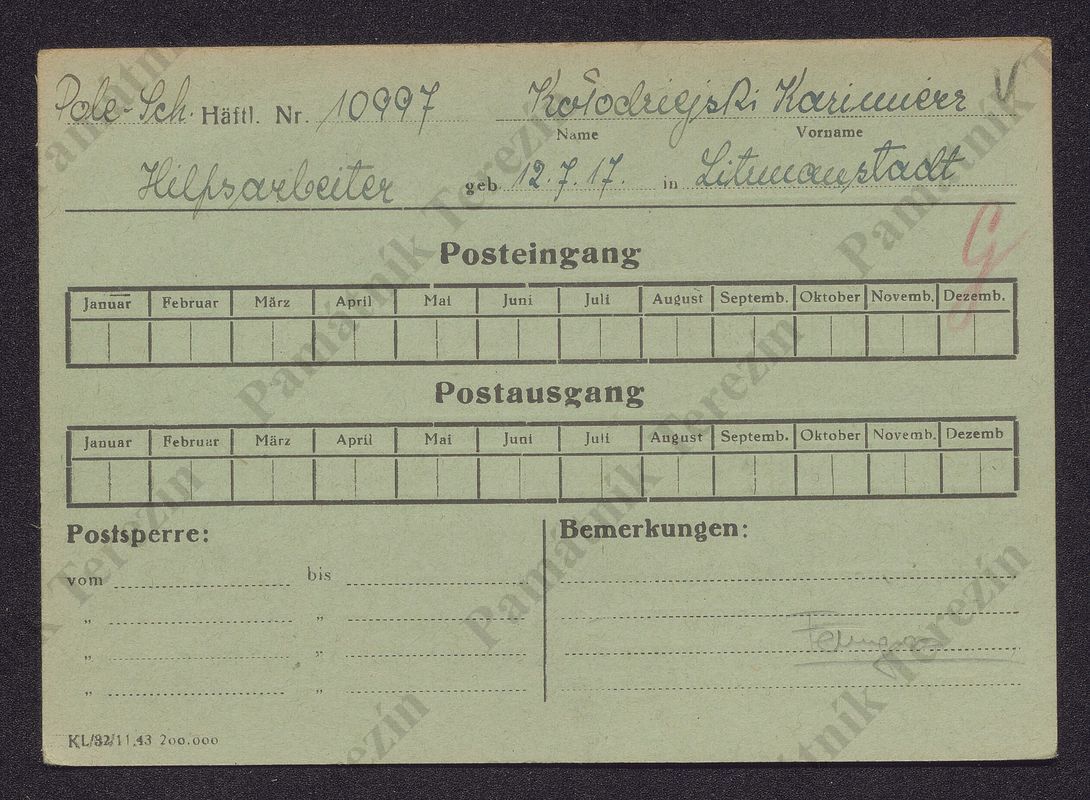 Pole-Sch. Häftl. Nr. 10997 Kołodziejski Kazimierz V
Name Vorname
Hilfsarbeiter geb. 12.7.17. in Litzmanstadt
G
Posteingang
Januar Februar März April Mai Juni Juli August Septemb. Oktober Novemb. Dezemb.
Postausgang
Januar Februar März April Mai Juni Juli August Septemb. Oktober Novemb. Dezemb
Postsperre: Bemerkungen:
vom bis
„ „
„ „
„ „
KL/82/11.43 200.000
Památník Terezín